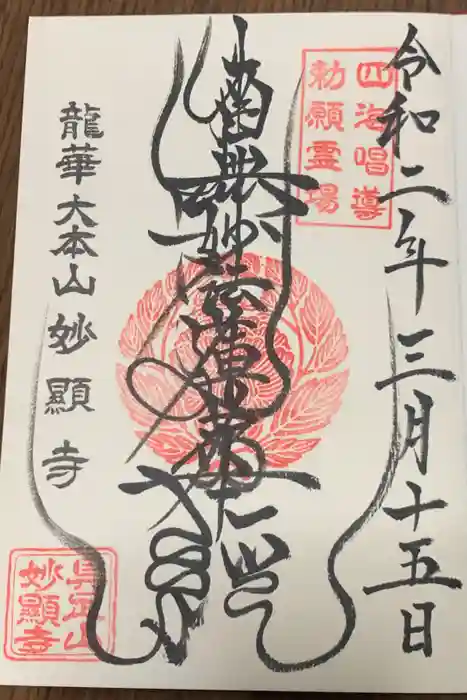 令和二年三月十五日
四海唱導
勅願霊場
南無妙法蓮華経
龍華大本山妙顯寺
具足山
妙顯寺